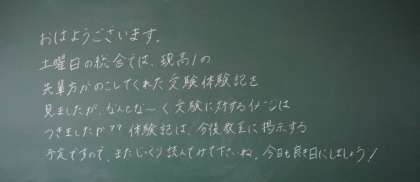 おはようございます。
土曜日の総合では、現高1の
先輩方がのこしてくれた受験体験記を
見ましたが、なんとな〜く受験に対するイメージは
つきましたか?? 体験記は、今後教室に掲示する
予定ですので、またじっくり読んでみて下さいね。今日も良き日にしましょう!